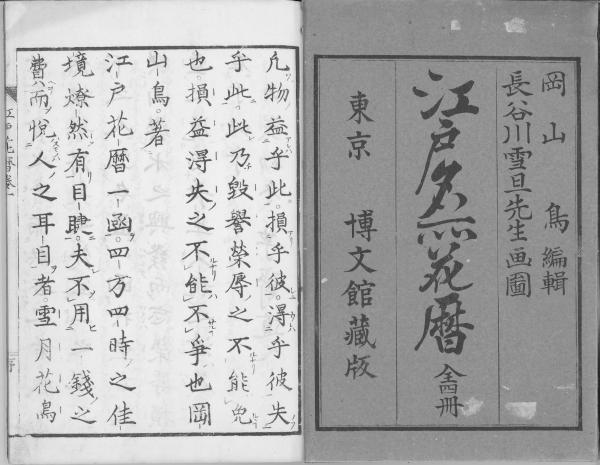 岡山鳥編輯
長谷川雪旦先生画圖
江戸名所花暦 全四冊
東京 博文館藏版
凡物益乎此。損乎彼。得乎彼失
乎此。此乃毀譽榮辱之不能免
也。損益得失之不能不爭也岡
山鳥。著
江戸花暦一函。四方四時之佳
境燎然有目睫。夫不用一錢之
費。而悅人之耳目者。雪月花鳥
江戸花暦巻一
序